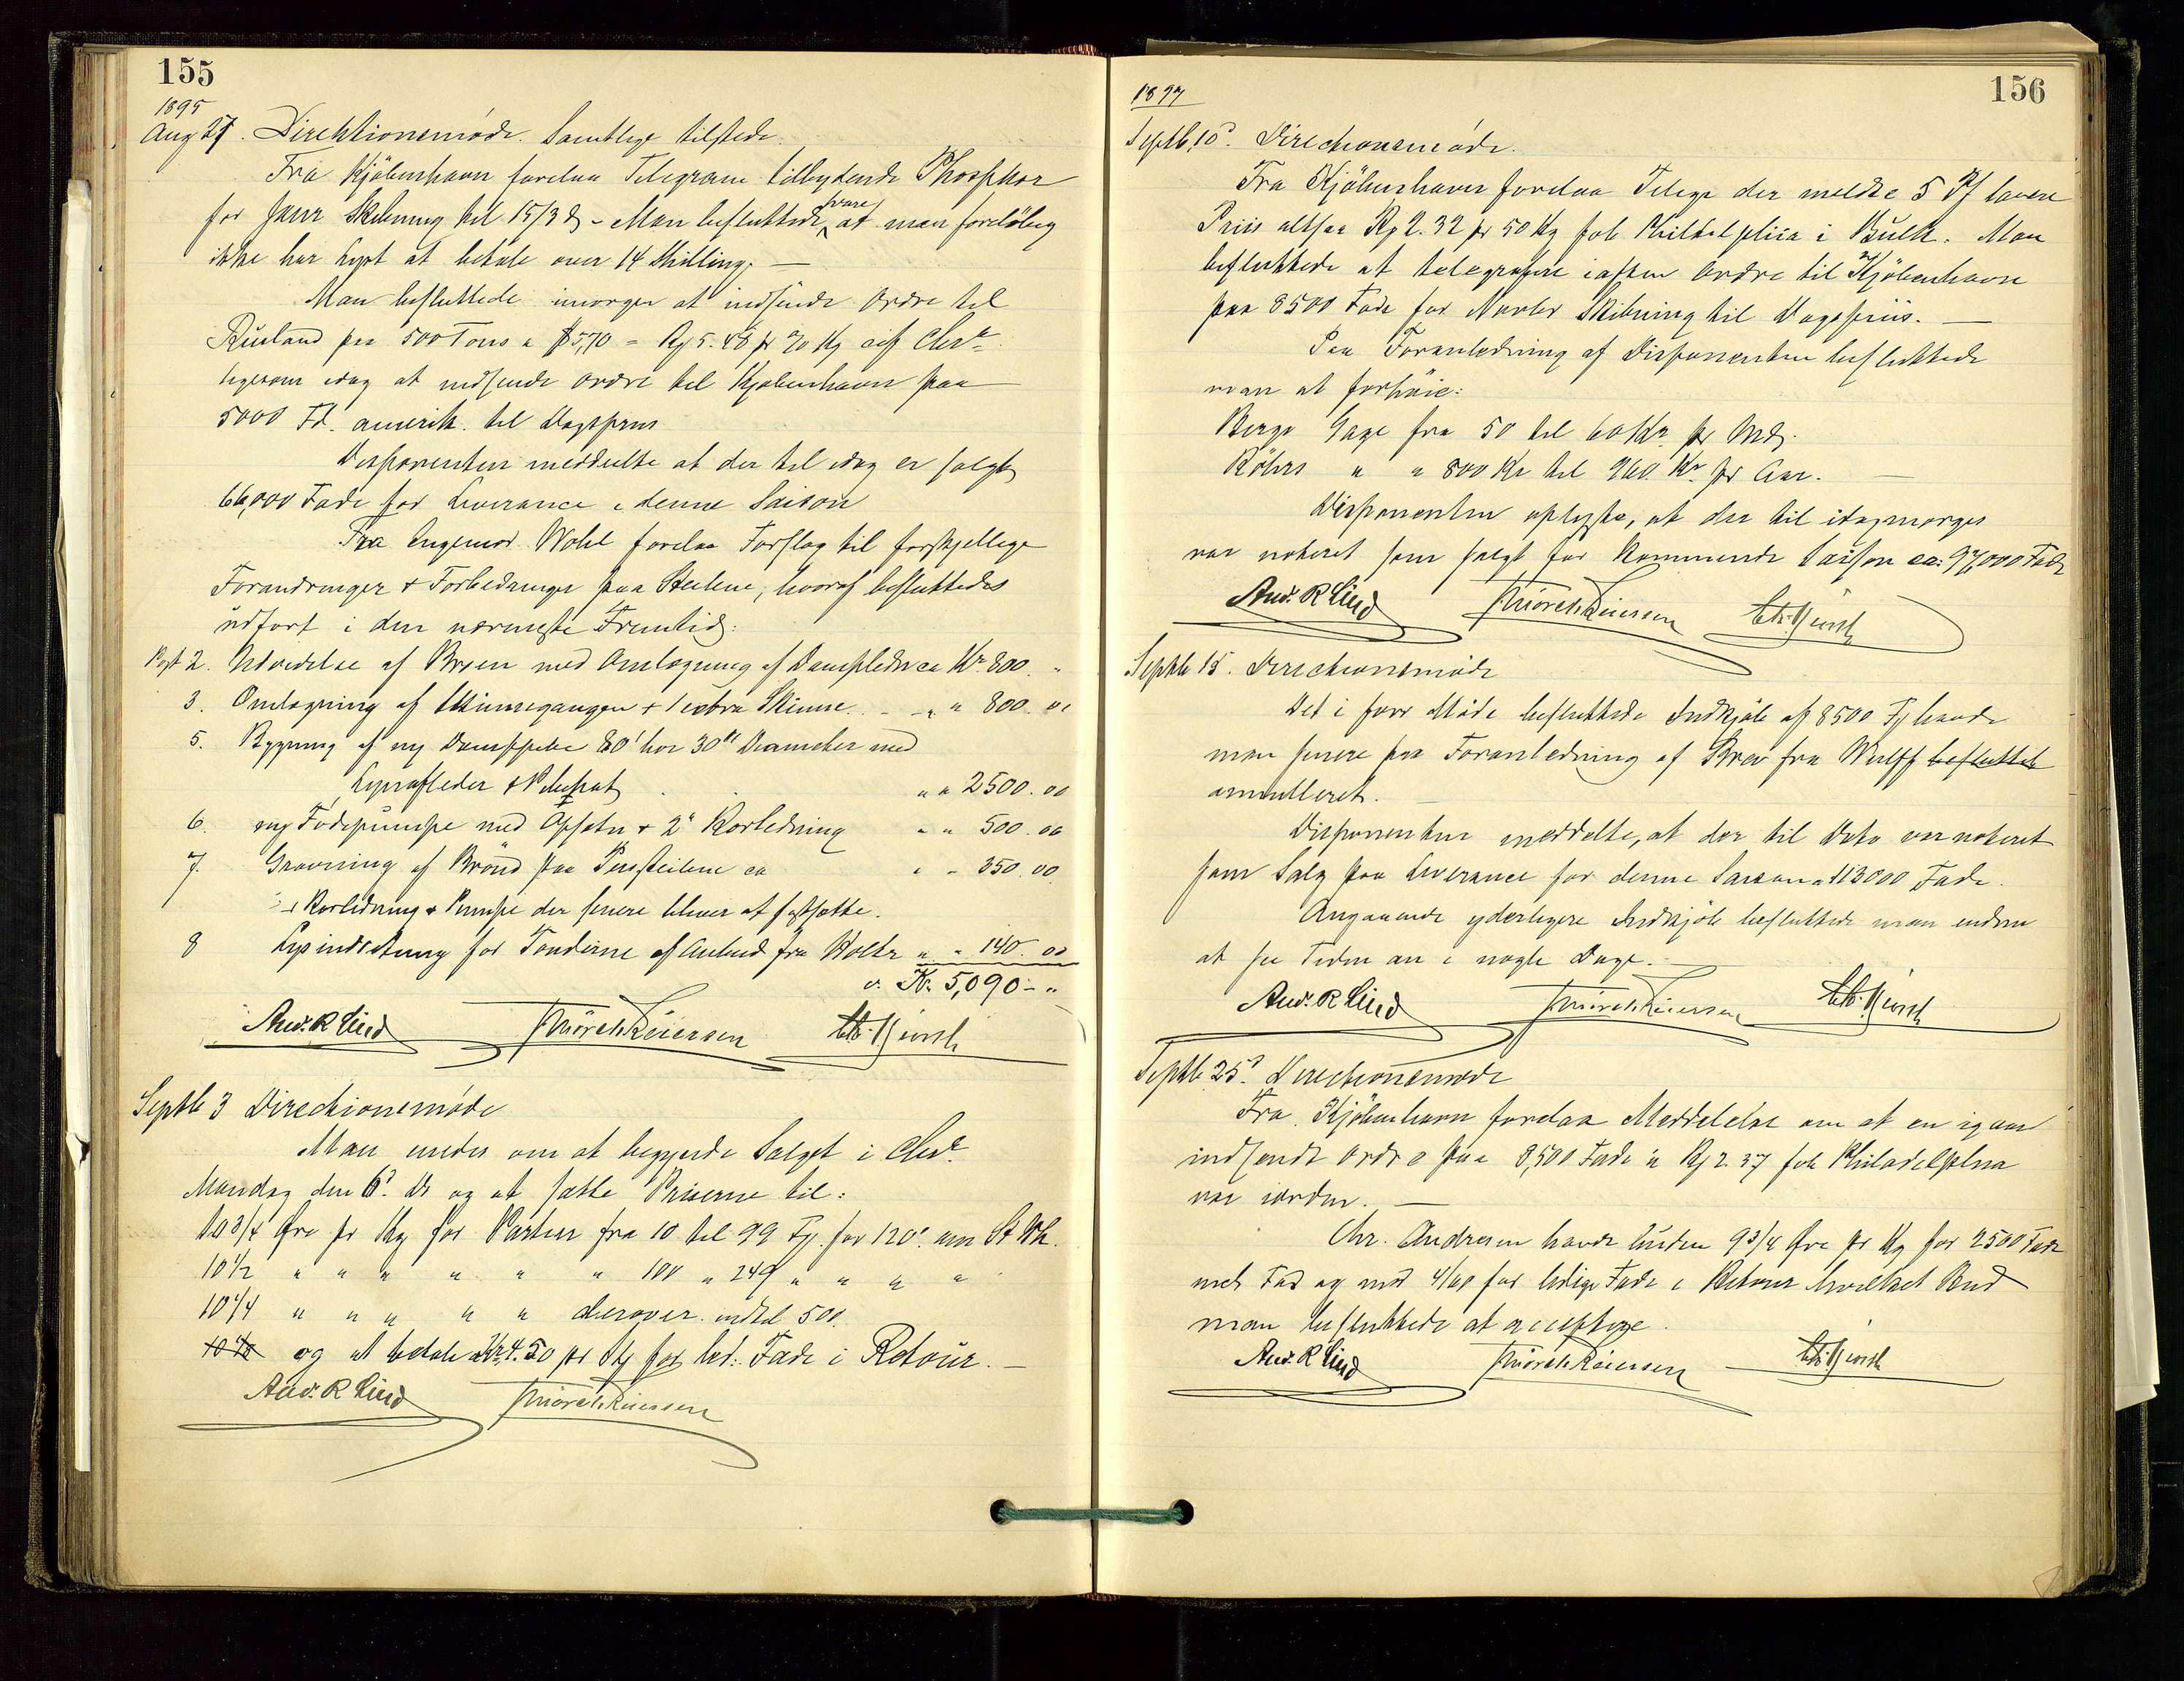 155
1895
Aug 27. Direktionsmøde. Samtlige tilstede.
Fra Kjöbenhavn forelaa Telegram tilbydende Phosphor
for Janr Skibning til 15/3 d - Man besluttede svare at man foreløbig
ikke har Lyst at betale over 14 Shilling. —
Man besluttede imorgen at indsende Ordre til
Rusland paa 500 Tons a 5,70 = 5.48 pr Kg cif Chra
ligesom idag at indsende Ordre til Kjøbenhavn paa
5000 Fd. amerik. til Dagspris
Disponenten meddeelte at der til idag er solgt
66,000 Fade for Leverance i denne Saison
Fra Ingeniør forelaa Forslag til forskjellige
Forandringer & Forbedringer paa Steilene, hvoraf besluttedes
udført i den nærmeste Fremtid:
Post 2. Udvidelse af Bryen med Omlægning af Dampleder ca Kr. 800. "
3. Omlægning af Skinnegangen + 1 extra Skinne. - " " 800. 00
5. Bygning af ny Damppibe 80' hør 30" Diameter med
Lynafleder & " " 2500.00
6. ny Fødepumpe med Opsatn & 2" Rørledning " " 500.00
7. Gravning af Brønd paa ca " " 350.00
Rørledning & Pumpe der senere bliver at fastsætte.
8 Lysindretning for Tønderne af Anbud fra " " 140.00
Kr. 5,090 - "
And. R Lind Reiersen
Septb 3 Directionsmøde
Man enedes om at begynde Salget i Chra
Mandag den 6'. Ds og at sætte Priserne til:
10 3/4 Øre pr Kg for Partier fra 10 til 99 Fg. for 120°
10 1/2 " " " " " " 100 " 249 " " " "
10 1/4 " " " " " derover indtil 500.
og at betale Kr 4.50 pr for led: Fade i Retour. —
And. R Lind Reiersen
156
1897
Septb. 10d. Directionsmøde.
Fra Kjöbenhavn forelaa Telegr der meldte 5 Pf lavere
Priis altsaa 2.32 pr 50 Kg fob i Bulk. Man
besluttede at telegrafere iaften Ordre til Kjöbenhavn
paa 8500 Fade for Novbr Skibning til Dagspriis. —
Paa Foranledning af Disponenten besluttede
man at forhøie:
Bergs Gage fra 50 til 60 Kr. pr Md.
" " 800 Kr til 960. Kr. pr Aar. —
Disponenten oplyste, at der til idagmorges
var noteret som solgt for kommende Saison ca: 97,000 Fade
And. R Lind Reiersen
Septb 15. Directionsmøde
Det i forr Møde besluttede Indkjøb af 8500 Fg havde
man senere paa Foranledning af Brev fra Wulff besluttet
annulleret. —
Disponenten meddelte, at der til Dato var noteret
som Salg paa Leverance for denne Saison 113000 Fade.
Angaaende yderligere Indkjøb besluttede man endnu
at see Tiden an i nogle Dage. —
And. R Lind Reiersen
Septb 25d. Directionsmøde
Fra Kjöbenhavn forelaa Meddelelse om at en igaar
indsendt Ordre paa 8,500 Fade a 2.37 fob Philadelphia
var iorden. —
Chr. Andresen havde buden 9 3/4 Øre pr Kg for 2500 Fade
med Fad og mod 4/60 for ledige Fade i Retour hvilket Bud
man besluttede at acceptere.
And. R Lind Reiersen